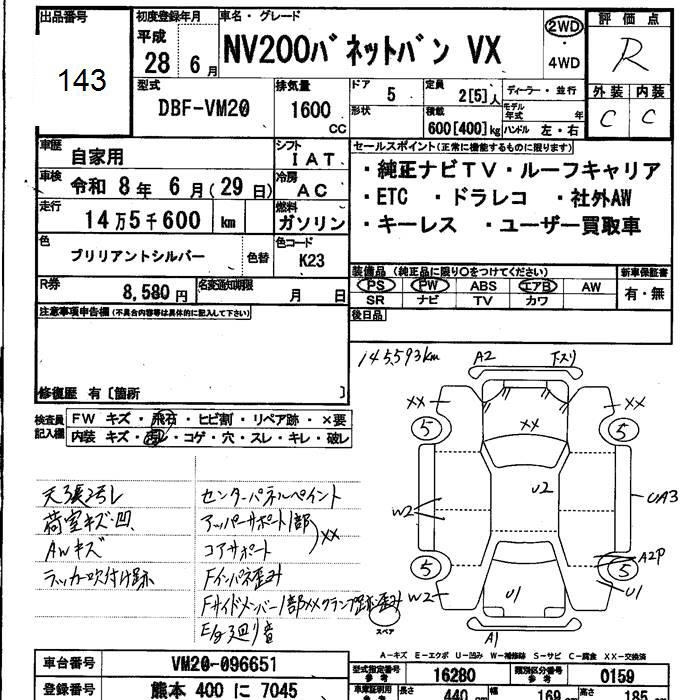 出品番号 初度登録年月 車名・グレード 評価点
143
平成 28 6月 NV200バネットバン VX 2WD・4WD R
型式 排気量 ドア 定員 ディーラー・並行 外装 内装
DBF-VM20 1600 CC 5 2[5]人 モデル年式 年 C C
形状 積載 600[400]kg ハンドル 左・右
車歴 自家用 シフト IAT セールスポイント(正常に機能するものに限ります)
車検 令和 8年 6月(29日) 冷房 AC
・純正ナビTV・ルーフキャリア
走行 14万5千600 km 燃料 ガソリン
・ETC ・ドラレコ ・社外AW
・キーレス ・ユーザー買取車
色 ブリリアントシルバー 色替 色コード K23
装備品(純正品に限り○をつけてください) 新車保証書
R券 8,580円 名変通知期限 月 日
PS PW ABS エアB AW 有・無
SR ナビ TV カワ
注意事項申告欄(不具合内容等は具体的に記入して下さい)
後日品
修復歴 有〔箇所 〕
145,593km A2 下スリ
検査員記入欄
FW キズ・飛石・ヒビ割・リペア跡・×要
内装 キズ・汚レ・コゲ・穴・スレ・キレ・破レ
XX XX
5 XX 5
U2
W2 UA3
A2P
5 5
W2 U1 U1
A1
天張汚レ センターパネルペイント
荷室キズ・凹 アッパーサポート1部
AWキズ コアサポート XX
ラッカー吹付け跡 Fインパネ歪み
Fサイドメンバー1部XXクランプ跡歪み
E/g廻り音
スペア
A-キズ E-エクボ U-凹み W-補修跡 S-サビ C-腐食 XX-交換済
車台番号 VM20-096651
型式指定番号 参考 16280 類別区分番号 参考 0159
登録番号 熊本 400 に 7045
車庫証明用 長さ 440 cm 幅 169 cm 高さ 185